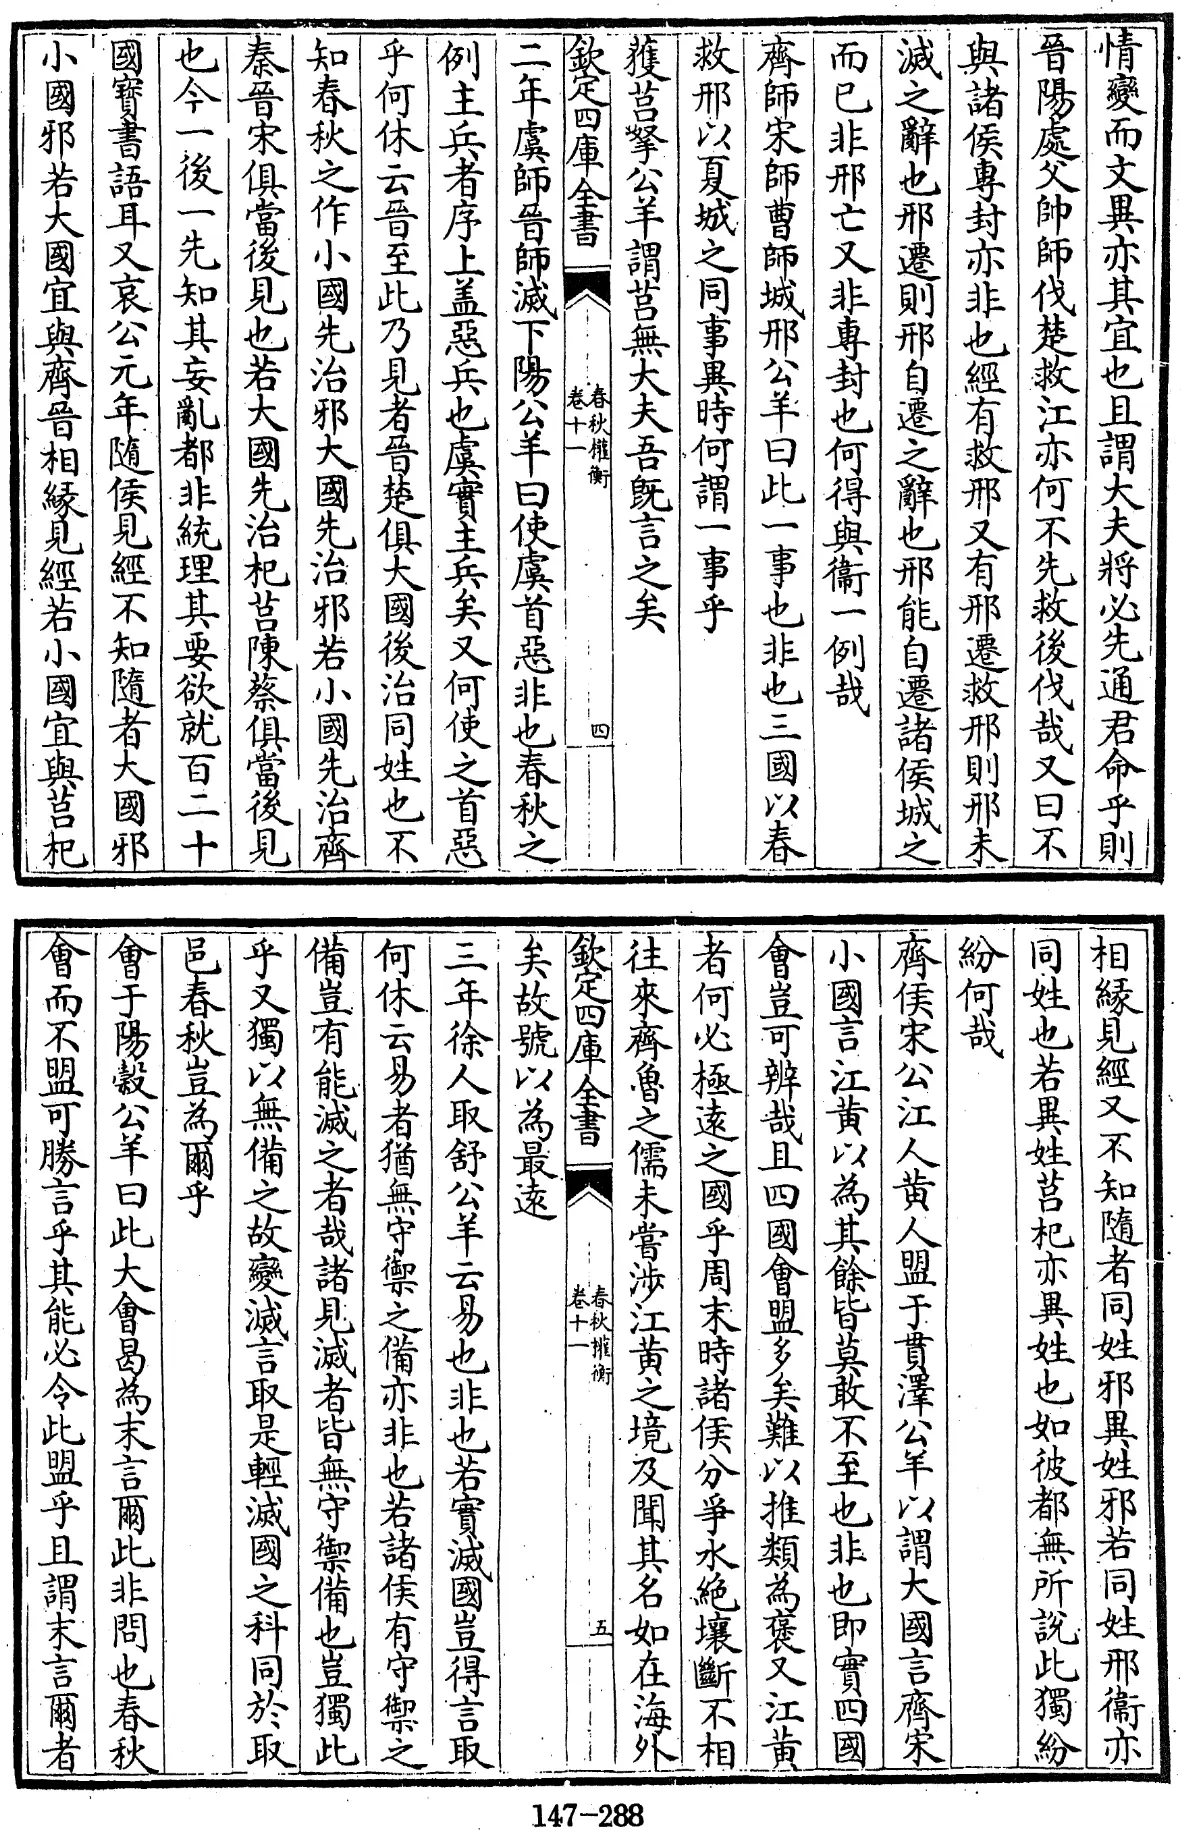 情變而文異亦其宜也且謂大夫將必先通君命乎則
晉陽處父帥師伐楚救江亦何不先救後伐哉又曰不
與諸侯專封亦非也經有救邢又有邢遷救邢則邢未
滅之辭也邢遷則邢自遷之辭也邢能自遷諸侯城之
而已非邢亡又非專封也何得與衞一例哉
齊師宋師曹師城邢公羊曰此一事也非也三國以春
救邢以夏城之同事異時何謂一事乎
獲莒挐公羊謂莒無大夫吾旣言之矣
欽定四庫全書
春秋權衡
卷十一
四
二年虞師晉師滅下陽公羊曰使虞首惡非也春秋之
例主兵者序上盖惡兵也虞實主兵矣又何使之首惡
乎何休云晉至此乃見者晉楚俱大國後治同姓也不
知春秋之作小國先治邪大國先治邪若小國先治齊
秦晉宋俱當後見也若大國先治杞莒陳蔡俱當後見
也今一後一先知其妄亂都非統理其要欲就百二十
國寳書語耳又哀公元年隨侯見經不知隨者大國邪
小國邪若大國宜與齊晉相縁見經若小國宜與莒杞
相縁見經又不知隨者同姓邪異姓邪若同姓邢衞亦
同姓也若異姓莒杞亦異姓也如彼都無所說此獨紛
紛何哉
齊侯宋公江人黄人盟于貫澤公羊以謂大國言齊宋
小國言江黄以為其餘皆莫敢不至也非也即實四國
會豈可辨哉且四國會盟多矣難以推類為褒又江黄
者何必極逺之國乎周末時諸侯分爭水絶壤斷不相
往來齊魯之儒未嘗涉江黄之境及聞其名如在海外
欽定四庫全書
春秋權衡
卷十一
五
矣故號以為最逺
三年徐人取舒公羊云易也非也若實滅國豈得言取
何休云易者猶無守禦之備亦非也若諸侯有守禦之
備豈有能滅之者哉諸見滅者皆無守禦備也豈獨此
乎又獨以無備之故變滅言取是輕滅國之科同於取
邑春秋豈為爾乎
會于陽穀公羊曰此大會曷為末言爾此非問也春秋
會而不盟可勝言乎其能必令此盟乎且謂末言爾者
147-288